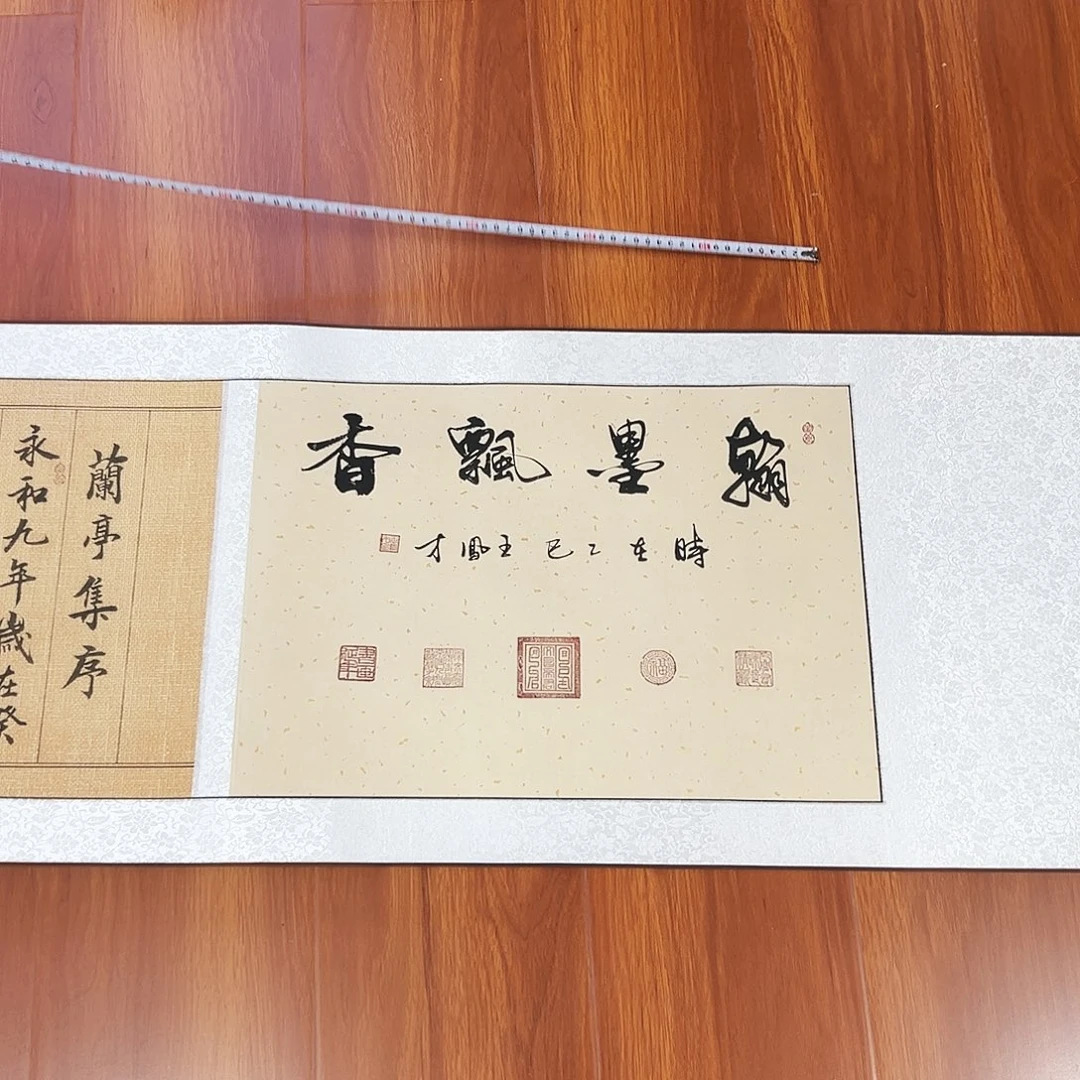 翰墨飄香
時在乙巳王鳳才
蘭亭集序
永和九年歲在癸